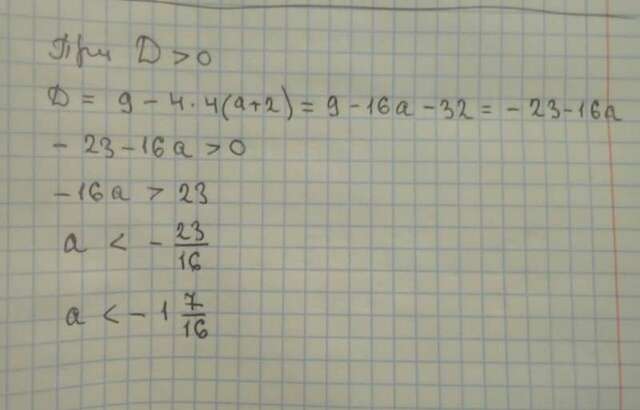 При D > 0
D = 9 - 4·4(a+2) = 9 - 16a - 32 = -23-16a
- 23 - 16a > 0
-16a > 23
a < - 23/16
a < - 1 7/16